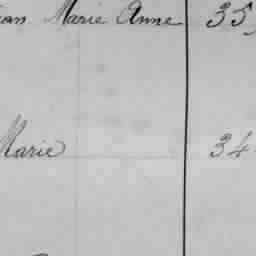 Marie Anne 35
Marie 34